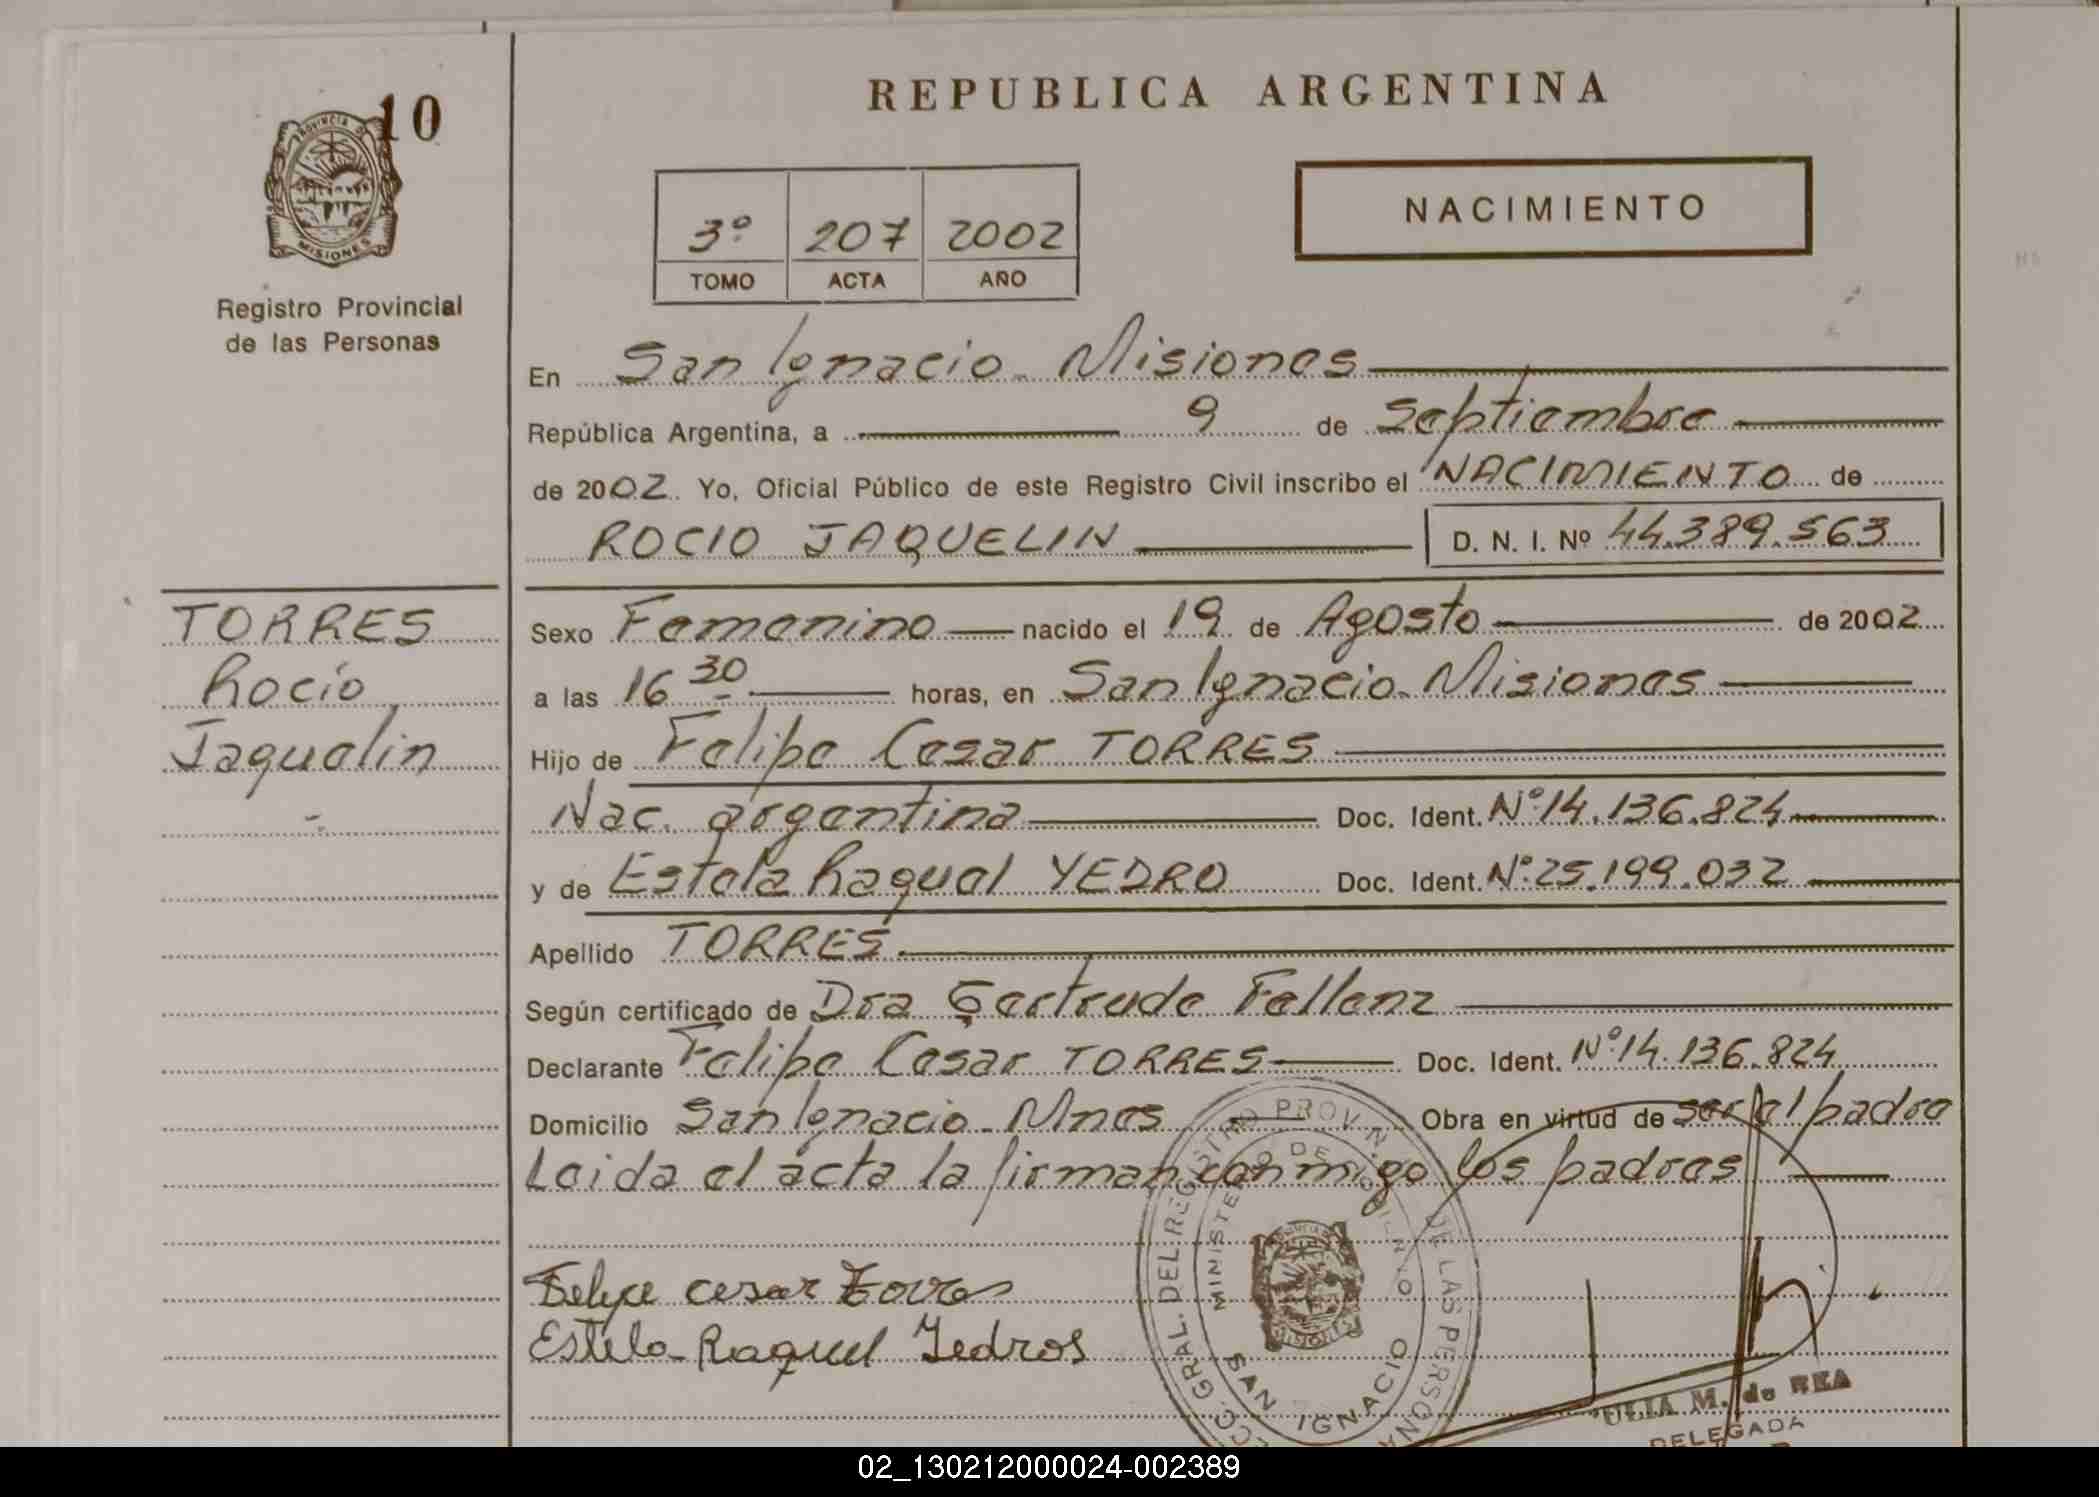 10
PROVINCIA DE
MISIONES
Registro Provincial
de las Personas
TORRES
Rocío
Jaquelin
REPUBLICA ARGENTINA
3º 207 2002
TOMO ACTA AÑO
NACIMIENTO
En San Ignacio - Misiones
República Argentina, a 9 de Septiembre
de 2002 Yo, Oficial Público de este Registro Civil inscribo el NACIMIENTO de
ROCIO JAQUELIN D. N. I. Nº 44.389.563
Sexo Femenino nacido el 19 de Agosto de 2002
a las 16 30 horas, en San Ignacio - Misiones
Hijo de Felipe Cesar TORRES
Nac. argentina Doc. Ident. Nº 14.136.824
y de Estela Raquel YEDRO Doc. Ident. Nº 25.199.032
Apellido TORRES
Según certificado de Dra Gertrude Fellenz
Declarante Felipe Cesar TORRES Doc. Ident. Nº 14.136.824
Domicilio San Ignacio - Mnes Obra en virtud de ser el padre
Leida el acta la firman conmigo los padres
Felipe Cesar Torres
Estela Raquel Yedros
GRAL. DEL REGISTRO PROV. DE LAS PERSONA
MINISTERIO DE
MISIONES
SAN IGNACIO
M. de REA
DELEGADA
02_130212000024-002389